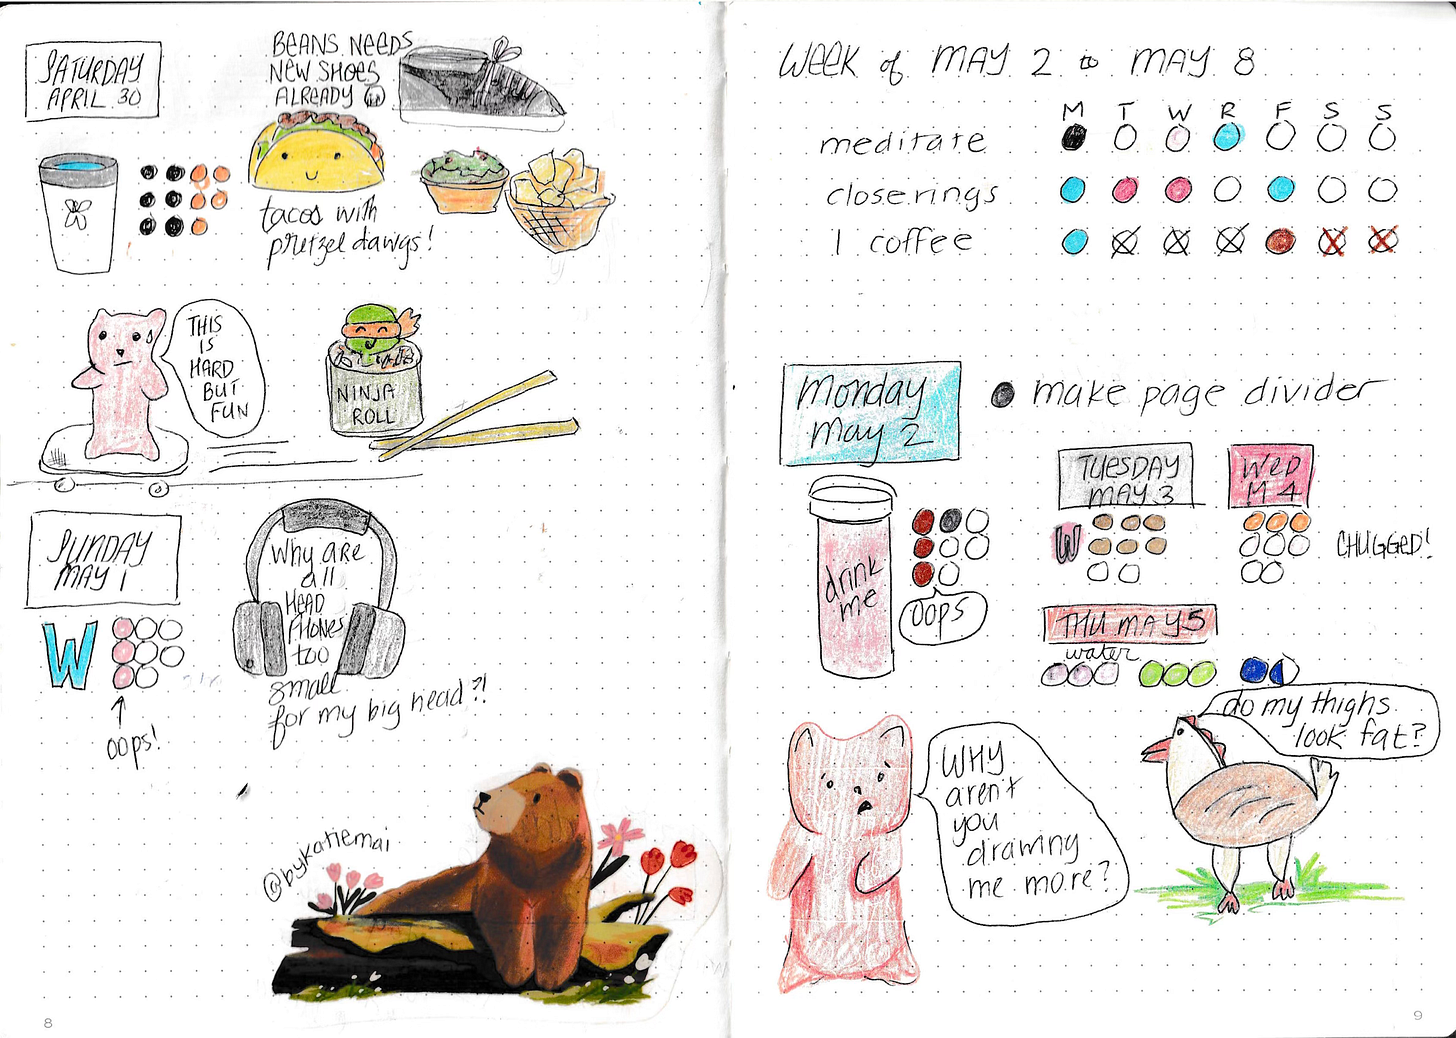 SATURDAY
APRIL 30
BEANS NEEDS
NEW SHOES
ALREADY
tacos with
pretzel dawgs!
THIS
IS
HARD
BUT
FUN
NINJA
ROLL
SUNDAY
MAY 1
W
oops!
Why are
all
HEAD
PHONES
too
small
for my big head?!
@bykatiemai
8
WEEK of MAY 2 to MAY 8
M T W R F S S
meditate
close rings
1 coffee
Monday
May 2
make page divider
drink
me
OOPS
TUESDAY
MAY 3
W
WED
M 4
CHUGGED!
THU MAY 5
water
WHY
aren't
you
drawing
me more?
do my thighs
look fat?
9